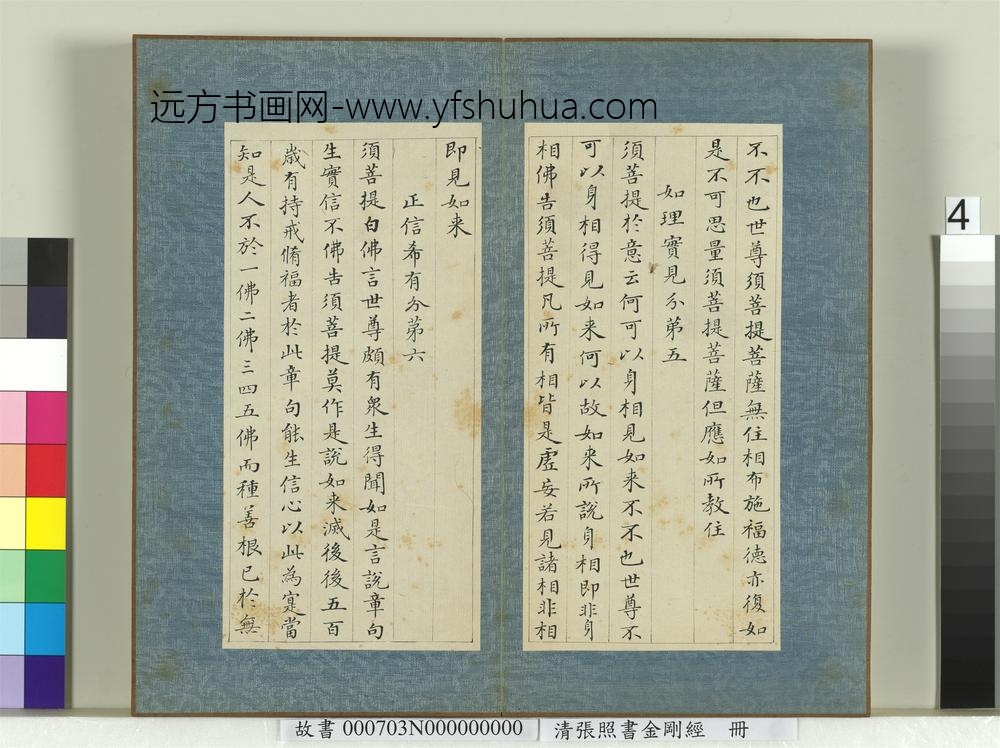 远方书画网-www.yfshuhua.com
不不也世尊須菩提菩薩無住相布施福德亦復如
是不可思量須菩提菩薩但應如所教住
如理實見分第五
須菩提於意云何可以身相見如来不不也世尊不
可以身相得見如来何以故如来所說身相即非身
相佛告須菩提凡所有相皆是虛妄若見諸相非相
即見如来
正信希有分第六
須菩提白佛言世尊頗有衆生得聞如是言說章句
生實信不佛告須菩提莫作是說如来滅後後五百
歳有持戒脩福者於此章句能生信心以此為寔當
知是人不於一佛二佛三四五佛而種善根已於無
4
故書 000703N000000000 清張照書金剛經 冊